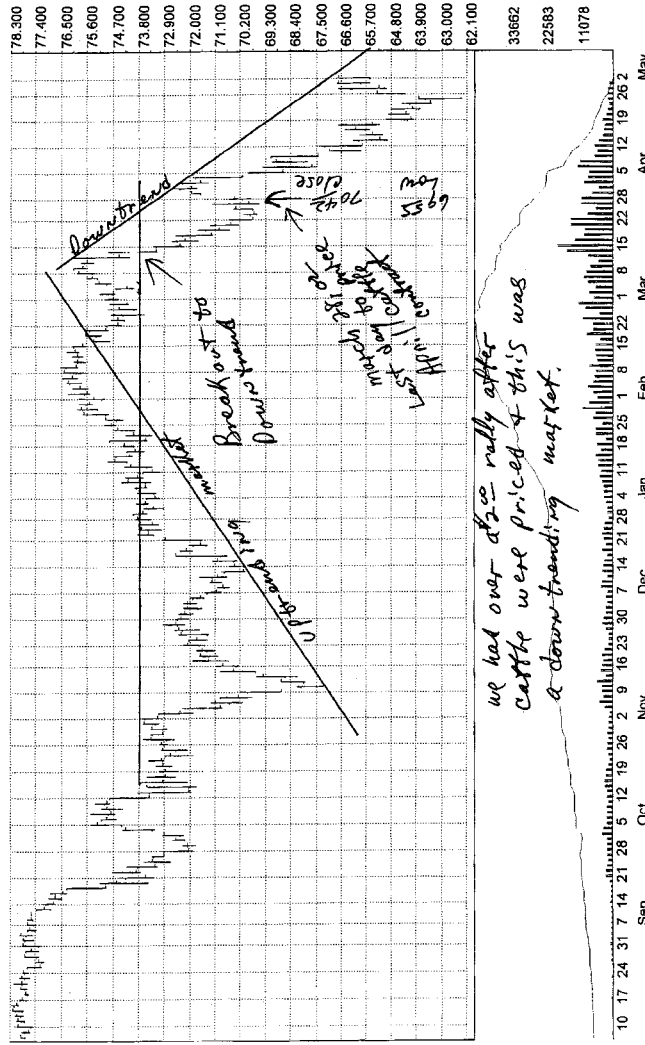 78.300
77.400
76.500
75.600
74.700
73.800
72.900
72.000
71.100
70.200
69.300
68.400
67.500
66.600
65.700
64.800
63.900
63.000
62.100
33662
22583
11078
Downtrend
Break out to
Down trend
Uptrending market
69 55 Low
70 42 close
March 28
Last day
April contract
we had over a $2 00 rally after
cattle were priced & this was
a down trending market.
10 17 24 31 7 14 21 28 5 12 19 26 2 9 16 23 30 7 14 21 28 4 11 18 25 1 8 15 22 1 8 15 22 28 5 12 19 26 2
Sep Oct Nov Dec Jan Feb Mar Apr May